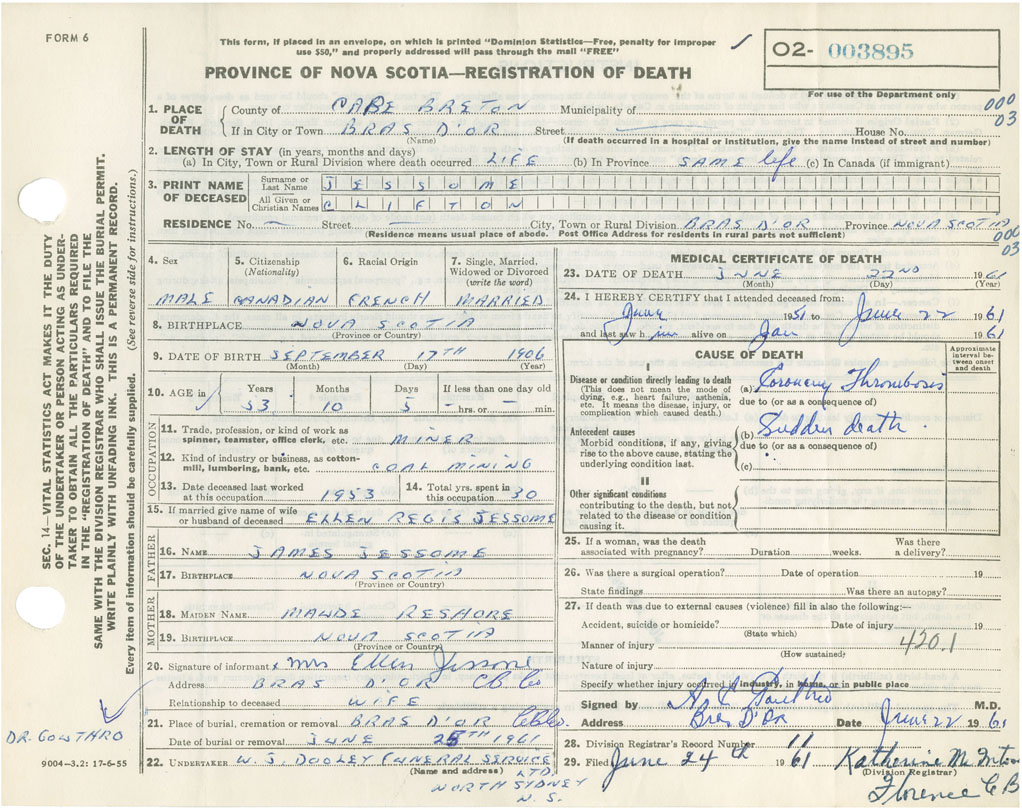 FORM 6
This form, if placed in an envelope, on which is printed "Dominion Statistics—Free, penalty for improper
use $50," and properly addressed will pass through the mail "FREE"
02- 003895
For use of the Department only
PROVINCE OF NOVA SCOTIA—REGISTRATION OF DEATH
000
03
1. PLACE OF DEATH County of CAPE BRETON Municipality of
If in City or Town BRAS D'OR Street House No.
(Name) (If death occurred in a hospital or institution, give the name instead of street and number)
2. LENGTH OF STAY (in years, months and days)
(a) In City, Town or Rural Division where death occurred LIFE (b) In Province SAME life (c) In Canada (if immigrant)
3. PRINT NAME OF DECEASED Surname or Last Name JESSOME
All Given or Christian Names CLIFTON
RESIDENCE No. — Street — City, Town or Rural Division BRAS D'OR Province NOVA SCOTIA
(Residence means usual place of abode. Post Office Address for residents in rural parts not sufficient)
000
03
4. Sex 5. Citizenship (Nationality) 6. Racial Origin 7. Single, Married, Widowed or Divorced (write the word)
MALE CANADIAN FRENCH MARRIED
8. BIRTHPLACE NOVA SCOTIA
(Province or Country)
9. DATE OF BIRTH SEPTEMBER 17TH 1906
(Month) (Day) (Year)
10. AGE in Years Months Days If less than one day old
53 10 5 – hrs. or – min.
OCCUPATION
11. Trade, profession, or kind of work as
spinner, teamster, office clerk, etc. MINER
12. Kind of industry or business, as cotton-
mill, lumbering, bank, etc. COAL MINING
13. Date deceased last worked at this occupation 1953 14. Total yrs. spent in this occupation 30
15. If married give name of wife
or husband of deceased ELLEN REGIS JESSOME
FATHER
16. NAME JAMES JESSOME
17. BIRTHPLACE NOVA SCOTIA
(Province or Country)
MOTHER
18. MAIDEN NAME MAUDE RESHORE
19. BIRTHPLACE NOVA SCOTIA
(Province or Country)
20. Signature of informant Mrs Ellen Jessome
Address BRAS D'OR C.B. Co
Relationship to deceased WIFE
21. Place of burial, cremation or removal BRAS D'OR C.B.Co.
Date of burial or removal JUNE 25TH 1961
22. UNDERTAKER W. J. DOOLEY FUNERAL SERVICE LTD.
(Name and address) NORTH SYDNEY
N.S.
MEDICAL CERTIFICATE OF DEATH
23. DATE OF DEATH JUNE 22ND 1961
(Month) (Day) (Year)
24. I HEREBY CERTIFY that I attended deceased from:
June 1951 to June 22 1961
and last saw him alive on Jan 1961
CAUSE OF DEATH
Approximate interval between onset and death
I
Disease or condition directly leading to death (a) Coronary Thrombosis
(This does not mean the mode of
dying, e.g., heart failure, asthenia,
etc. It means the disease, injury, or
complication which caused death.)
due to (or as a consequence of)
Antecedent causes (b) Sudden death.
Morbid conditions, if any, giving
rise to the above cause, stating the
underlying condition last.
due to (or as a consequence of)
(c)
II
Other significant conditions
contributing to the death, but not
related to the disease or condition
causing it.
25. If a woman, was the death Was there
associated with pregnancy? Duration weeks. a delivery?
26. Was there a surgical operation? Date of operation 19
State findings Was there an autopsy?
27. If death was due to external causes (violence) fill in also the following:—
Accident, suicide or homicide? Date of injury 19
(State which)
Manner of injury 420.1
(How sustained)
Nature of injury
Specify whether injury occurred in industry, in home, or in public place
Signed by M.D.
Address Bras D'Or Date June 22 1961
28. Division Registrar's Record Number 11
29. Filed June 24th 1961 Katherine
(Division Registrar)
Florence C B
SEC. 14—VITAL STATISTICS ACT MAKES IT THE DUTY
OF THE UNDERTAKER OR PERSON ACTING AS UNDER-
TAKER TO OBTAIN ALL THE PARTICULARS REQUIRED
IN THE "REGISTRATION OF DEATH" AND TO FILE THE
SAME WITH THE DIVISION REGISTRAR WHO SHALL ISSUE THE BURIAL PERMIT.
WRITE PLAINLY WITH UNFADING INK. THIS IS A PERMANENT RECORD.
Every item of information should be carefully supplied. (See reverse side for instructions.)
DR. GOWTHRO
9004-3.2: 17-6-55